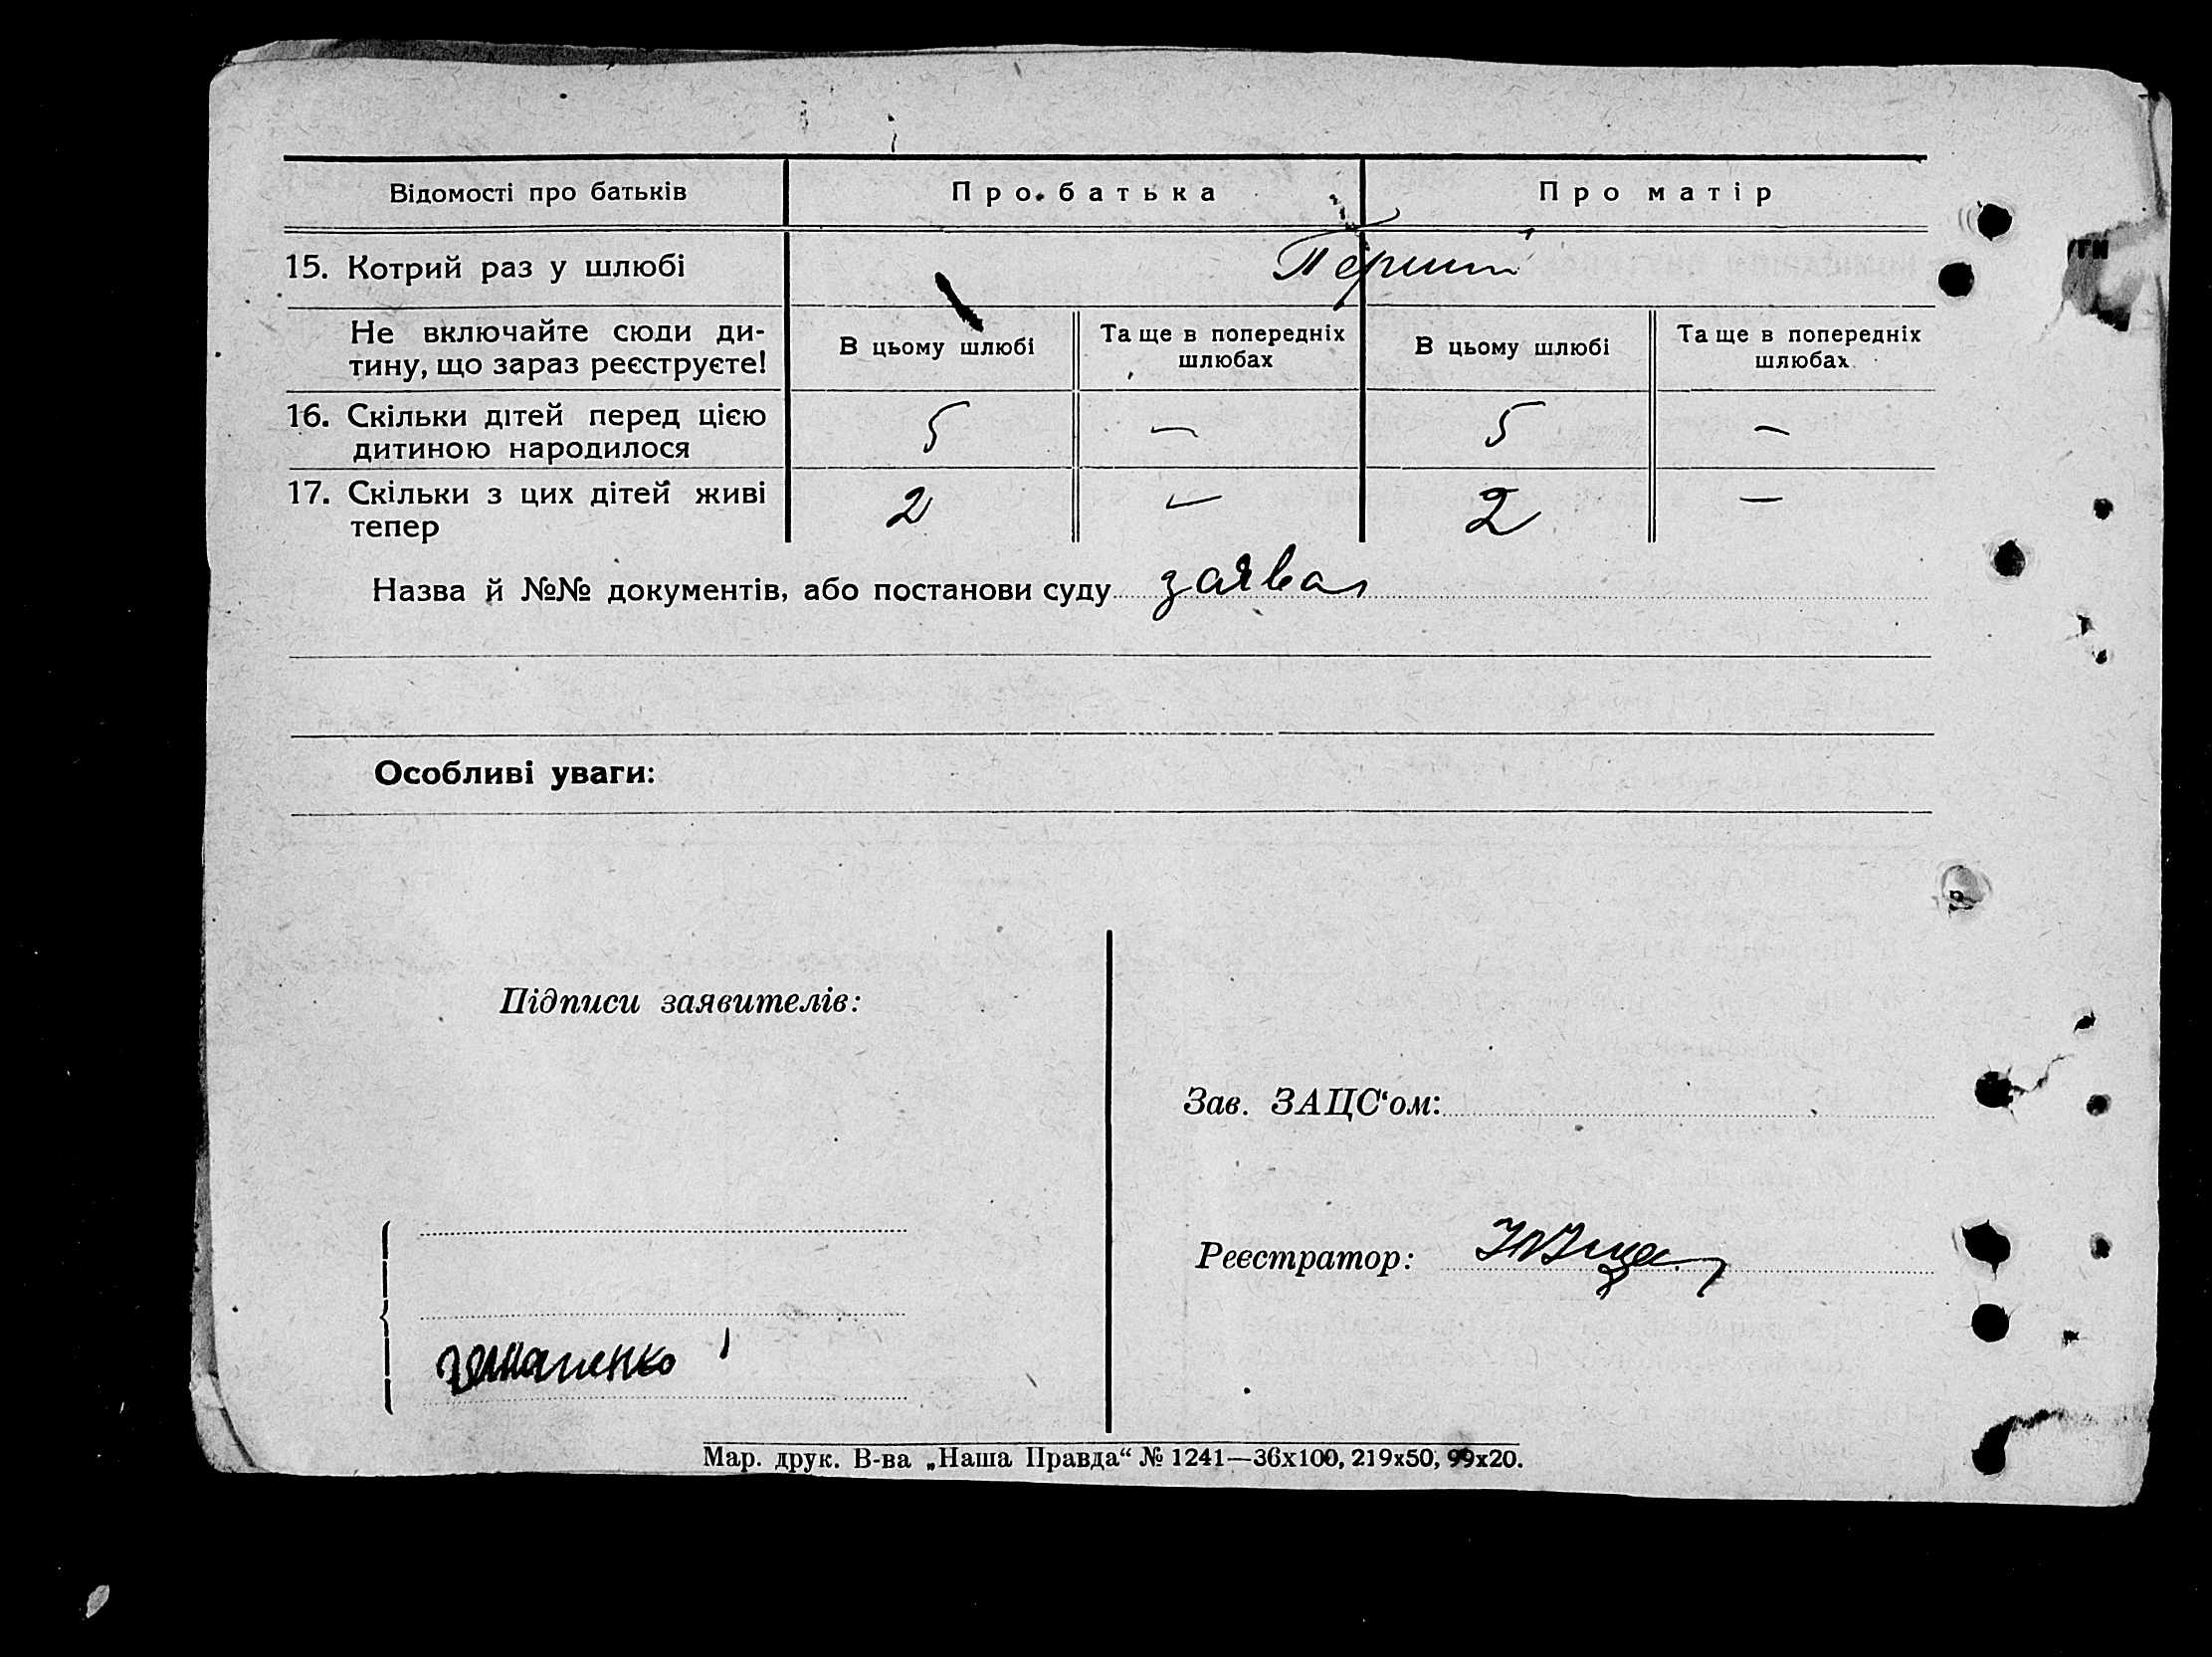 Відомості про батьків Про батька Про матір
15. Котрий раз у шлюбі Перший
Не включайте сюди ди-
тину, що зараз реєструєте!
В цьому шлюбі
Та ще в попередніх
шлюбах
В цьому шлюбі
Та ще в попередніх
шлюбах
16. Скільки дітей перед цією
дитиною народилося
5 — 5 —
17. Скільки з цих дітей живі
тепер
2 — 2 —
Назва й №№ документів, або постанови суду заява
Особливі уваги:
Підписи заявителів:
Зав. ЗАЦС‘ом:
Реєстратор:
Мар. друк. В-ва „Наша Правда“ № 1241—36х100, 219х50, 99х20.